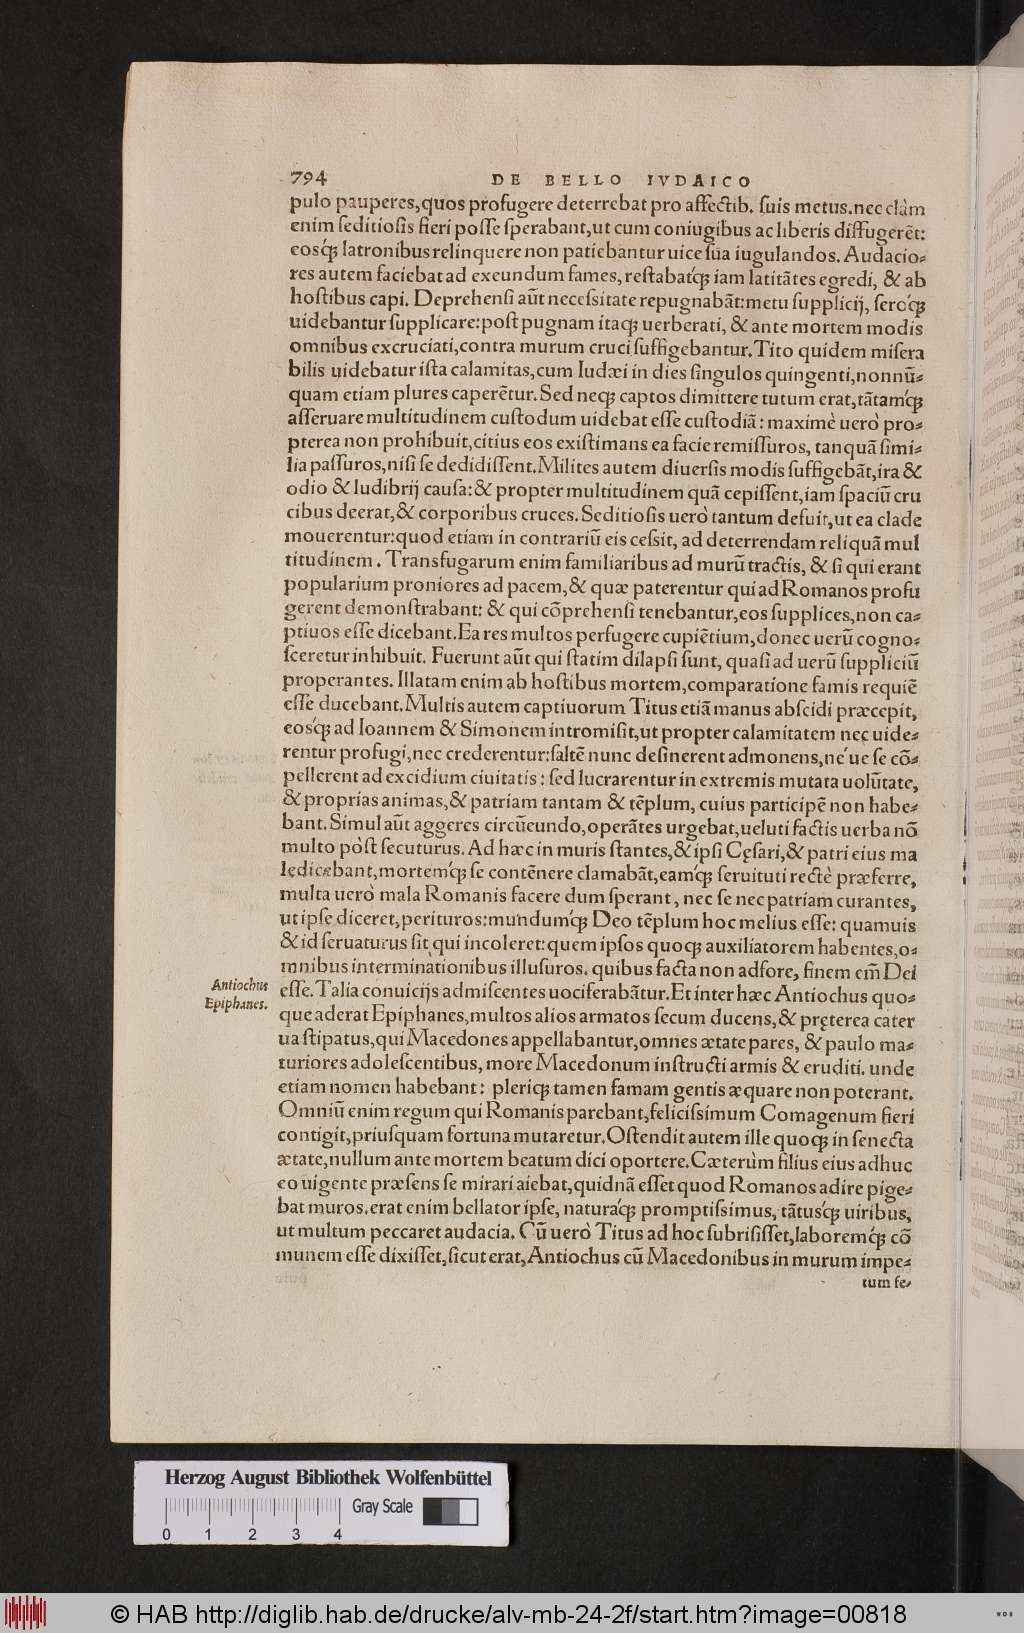 794 DE BELLO IVDAICO
pulo pauperes,quos profugere deterrebat pro affectib. ſuis metus.nec clàm
enim ſeditioſis fieri poſſe ſperabant,ut cum coniugibus ac liberis diffugerēt:
eosq́; latronibus relinquere non patiebantur uice ſua iugulandos. Audacio-
res autem faciebat ad exeundum fames, reſtabatq́; iam latitātes egredi, & ab
hoſtibus capi. Deprehenſi aūt neceſsitate repugnabāt: metu ſupplicij, ſeroq́;
uidebantur ſupplicare: poſt pugnam itaq; uerberati, & ante mortem modis
omnibus excruciati, contra murum cruci ſuffigebantur. Tito quidem miſera
bilis uidebatur iſta calamitas, cum Iudæi in dies ſingulos quingenti, nonnū-
quam etiam plures caperētur. Sed neq; captos dimittere tutum erat, tātamq́;
aſſeruare multitudinem cuſtodum uidebat eſſe cuſtodiā: maximè uerò pro-
pterea non prohibuit, citius eos exiſtimans ea facie remiſſuros, tanquā ſimi-
lia paſſuros, niſi ſe dedidiſſent. Milites autem diuerſis modis ſuffigebāt, ira &
odio & ludibrij cauſa: & propter multitudinem quā cepiſſent, iam ſpaciū cru
cibus deerat, & corporibus cruces. Seditioſis uerò tantum defuit, ut ea clade
mouerentur: quod etiam in contrariū eis ceſsit, ad deterrendam reliquā mul
titudinem. Transfugarum enim familiaribus ad murū tractis, & ſi qui erant
popularium proniores ad pacem, & quæ paterentur qui ad Romanos profu
gerent demonſtrabant: & qui cōprehenſi tenebantur, eos ſupplices, non ca-
ptiuos eſſe dicebant. Ea res multos perfugere cupiētium, donec uerū cogno-
ſceretur inhibuit. Fuerunt aūt qui ſtatim dilapſi ſunt, quaſi ad uerū ſuppliciū
properantes. Illatam enim ab hoſtibus mortem, comparatione famis requiē
eſſe ducebant. Multis autem captiuorum Titus etiā manus abſcidi præcepit,
eosq́; ad Ioannem & Simonem intromiſit, ut propter calamitatem nec uide-
rentur profugi, nec crederentur: ſaltē nunc deſinerent admonens, né ue ſe cō-
pellerent ad excidium ciuitatis: ſed lucrarentur in extremis mutata uolūtate,
& proprias animas, & patriam tantam & tēplum, cuius participē non habe-
bant. Simul aūt aggeres circūeundo, operātes urgebat, ueluti factis uerba nō
multo pòſt ſecuturus. Ad hæc in muris ſtantes, & ipſi Cęſari, & patri eius ma
ledicebant, mortemq́; ſe contēnere clamabāt, eamq́; ſeruituti rectè præferre,
multa uerò mala Romanis facere dum ſperant, nec ſe nec patriam curantes,
ut ipſe diceret, perituros: mundumq́; Deo tēplum hoc melius eſſe: quamuis
& id ſeruaturus ſit qui incoleret: quem ipſos quoq; auxiliatorem habentes, o-
mnibus interminationibus illuſuros. quibus facta non adfore, finem em̄ Dei
eſſe. Talia conuicijs admiſcentes uociferabātur. Et inter hæc Antiochus quo-
Antiochus
Epiphanes.
que aderat Epiphanes, multos alios armatos ſecum ducens, & pręterea cater
ua ſtipatus, qui Macedones appellabantur, omnes ætate pares, & paulo ma-
turiores adoleſcentibus, more Macedonum inſtructi armis & eruditi. unde
etiam nomen habebant: pleriq; tamen famam gentis æquare non poterant.
Omniū enim regum qui Romanis parebant, feliciſsimum Comagenum fieri
contigit, priuſquam fortuna mutaretur. Oſtendit autem ille quoq; in ſenecta
ætate, nullum ante mortem beatum dici oportere. Cæterùm filius eius adhuc
eo uigente præſens ſe mirari aiebat, quidnā eſſet quod Romanos adire pige-
bat muros. erat enim bellator ipſe, naturaq́; promptiſsimus, tātusq́; uiribus,
ut multum peccaret audacia. Cū uerò Titus ad hoc ſubriſiſſet, laboremq́; cō
munem eſſe dixiſſet, ſicut erat, Antiochus cū Macedonibus in murum impe-
tum fe-
Herzog August Bibliothek Wolfenbüttel
Gray Scale
0 1 2 3 4
© HAB http://diglib.hab.de/drucke/alv-mb-24-2f/start.htm?image=00818